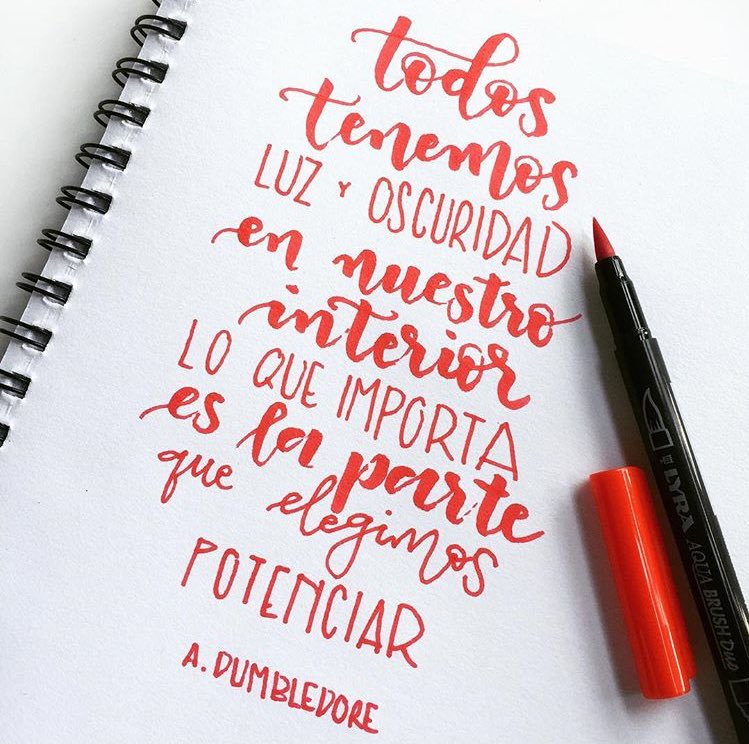 todos
tenemos
LUZ Y OSCURIDAD
en nuestro
interior
LO QUE IMPORTA
es la parte
que elegimos
POTENCIAR
A. DUMBLEDORE
LYRA AQUA BRUSH DUO